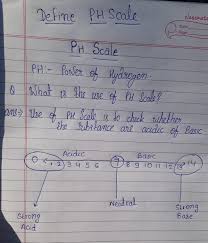 Define PH Scale
classmate
PH Scale
PH:- Power of Hydrogen.
Q What is the use of PH Scale?
Ans:→ Use of PH Scale is to check whether
the Substance are acidic of Basic
Acidic Basic
0 1 2 3 4 5 6 7 8 9 10 11 12 13 14
Strong Acid
Neutral
Strong Base